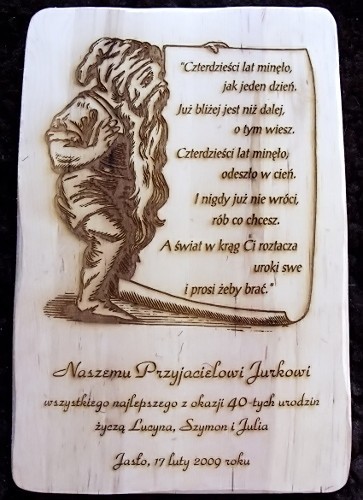 "Czterdzieści lat minęło,
jak jeden dzień.
Już bliżej jest niż dalej,
o tym wiesz.
Czterdzieści lat minęło,
odeszło w cień.
I nigdy już nie wróci,
rób co chcesz.
A świat w krąg Ci roztacza
uroki swe
i prosi żeby brać."
Naszemu Przyjacielowi Jurkowi
wszystkiego najlepszego z okazji 40-tych urodzin
życzą Lucyna, Szymon i Julia
Jasło, 17 luty 2009 roku